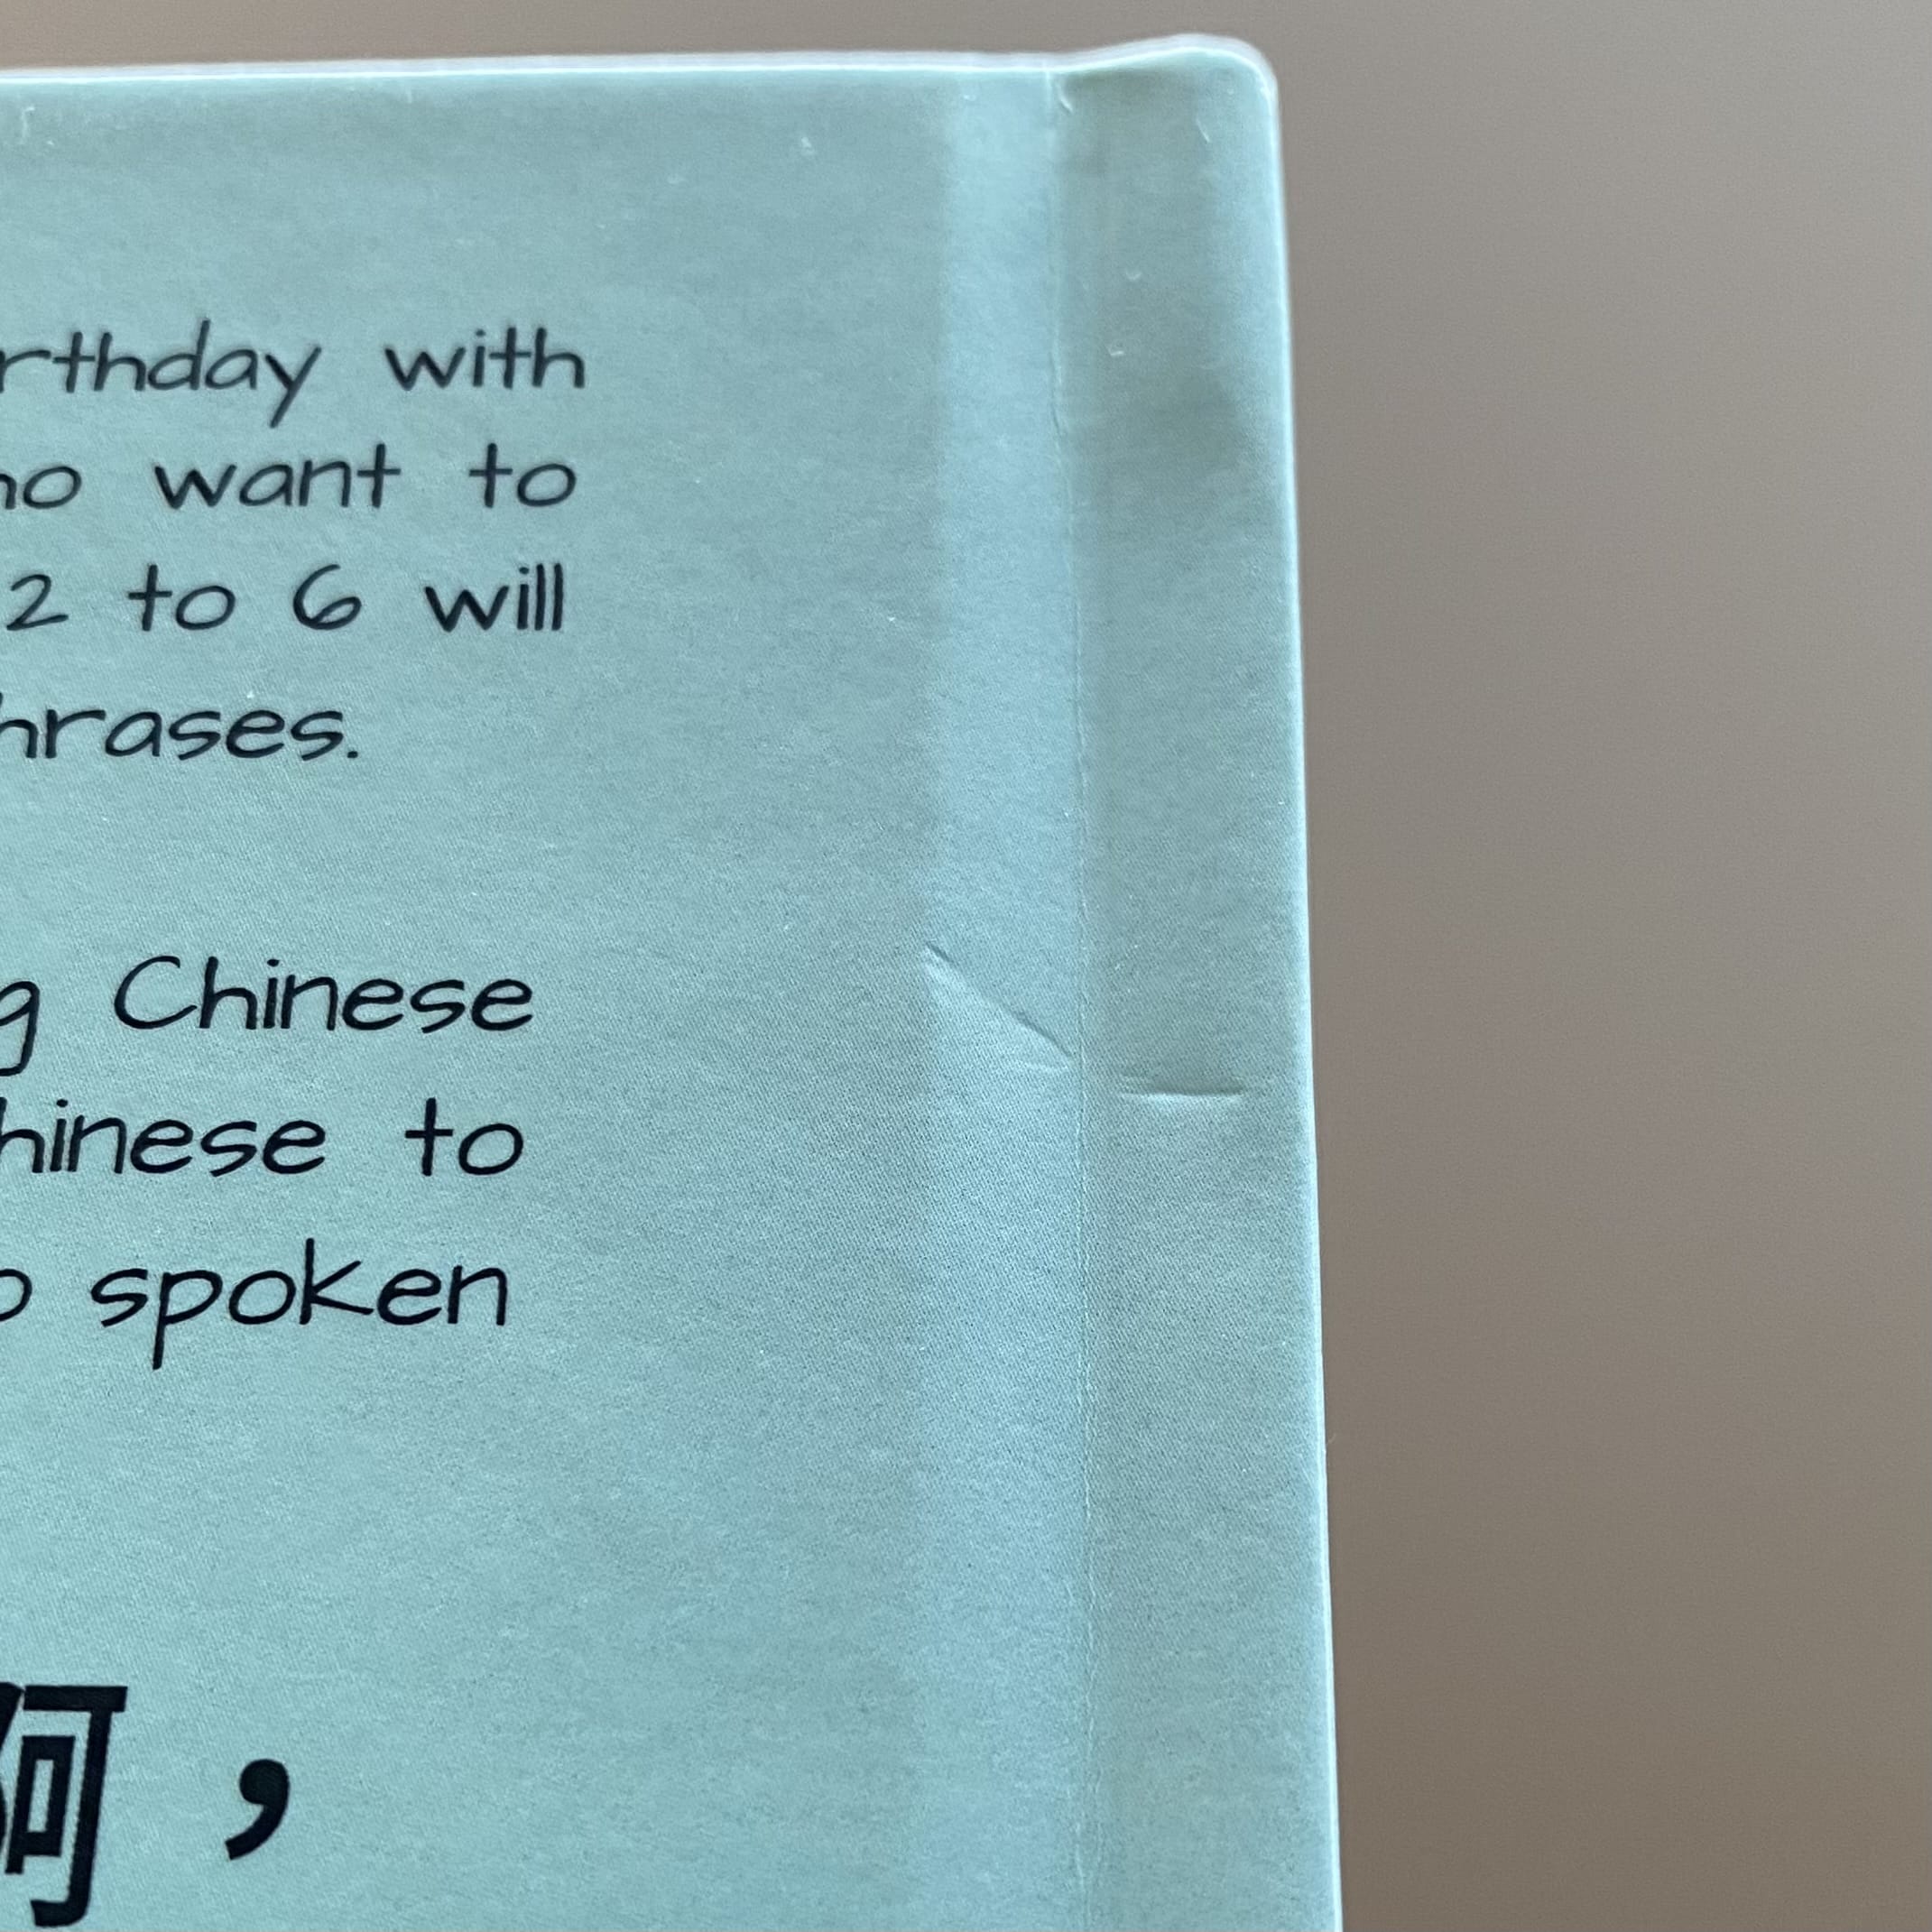 rthday with
ho want to
2 to 6 will
hrases.
g Chinese
hinese to
o spoken
阿，